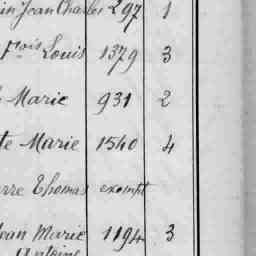 Jean Charles 297 1
frois Louis 1379 3
Marie 931 2
te Marie 1540 4
rre Thomas exempt
Jean Marie 1194 3
Antoine